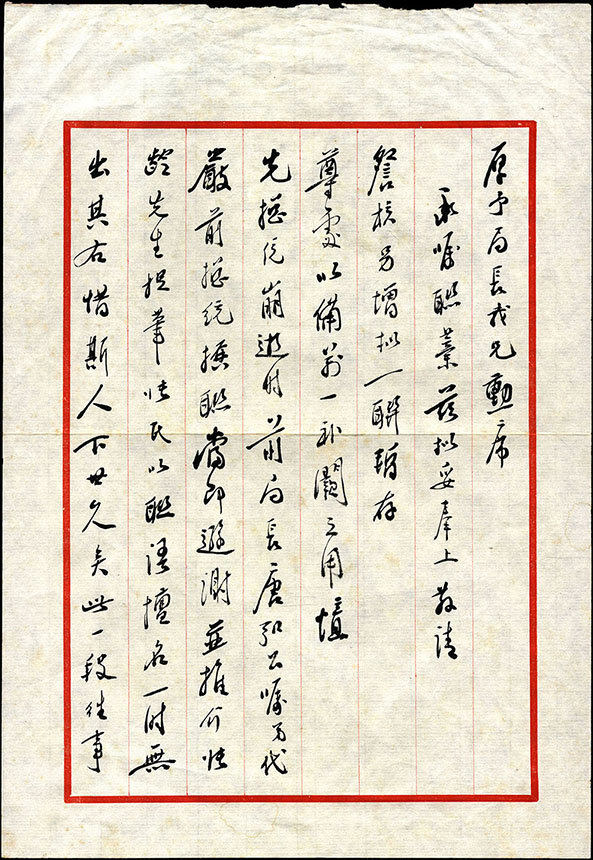 厚甫局長我兄勳席
承囑聯藁茲拟妥奉上敬請
詧核另增拟一聯暫存
尊處以備萬一补闕之用憶
先總統崩逝时前局長唐公囑弟代
嚴前總統撰聯當即遜謝並推介張
齡先生捉筆張氏以聯語擅名一时無
出其右惜斯人下世久矣此一段往事